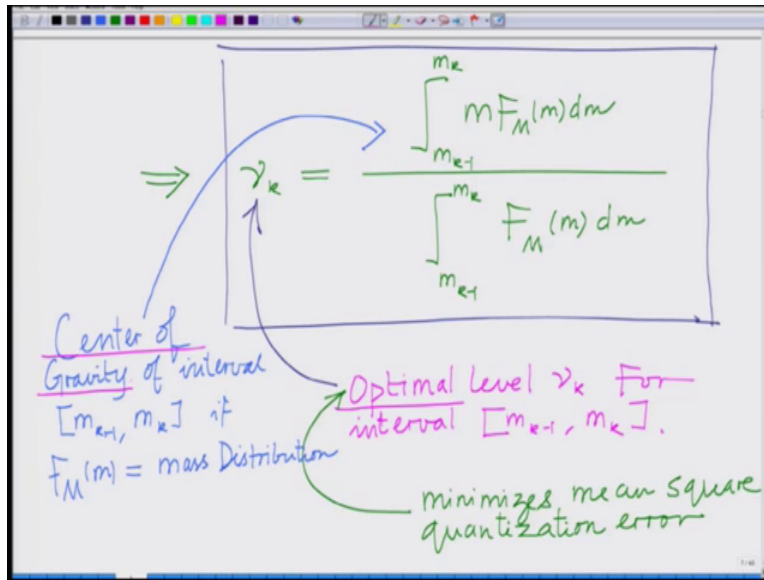 ⇒ ν_k = ∫_{m_{k-1}}^{m_k} m F_M(m) dm / ∫_{m_{k-1}}^{m_k} F_M(m) dm
Center of
Gravity of interval
[m_{k-1}, m_k] if
F_M(m) = mass Distribution
Optimal level ν_k For
interval [m_{k-1}, m_k].
minimizes mean square
quantization error